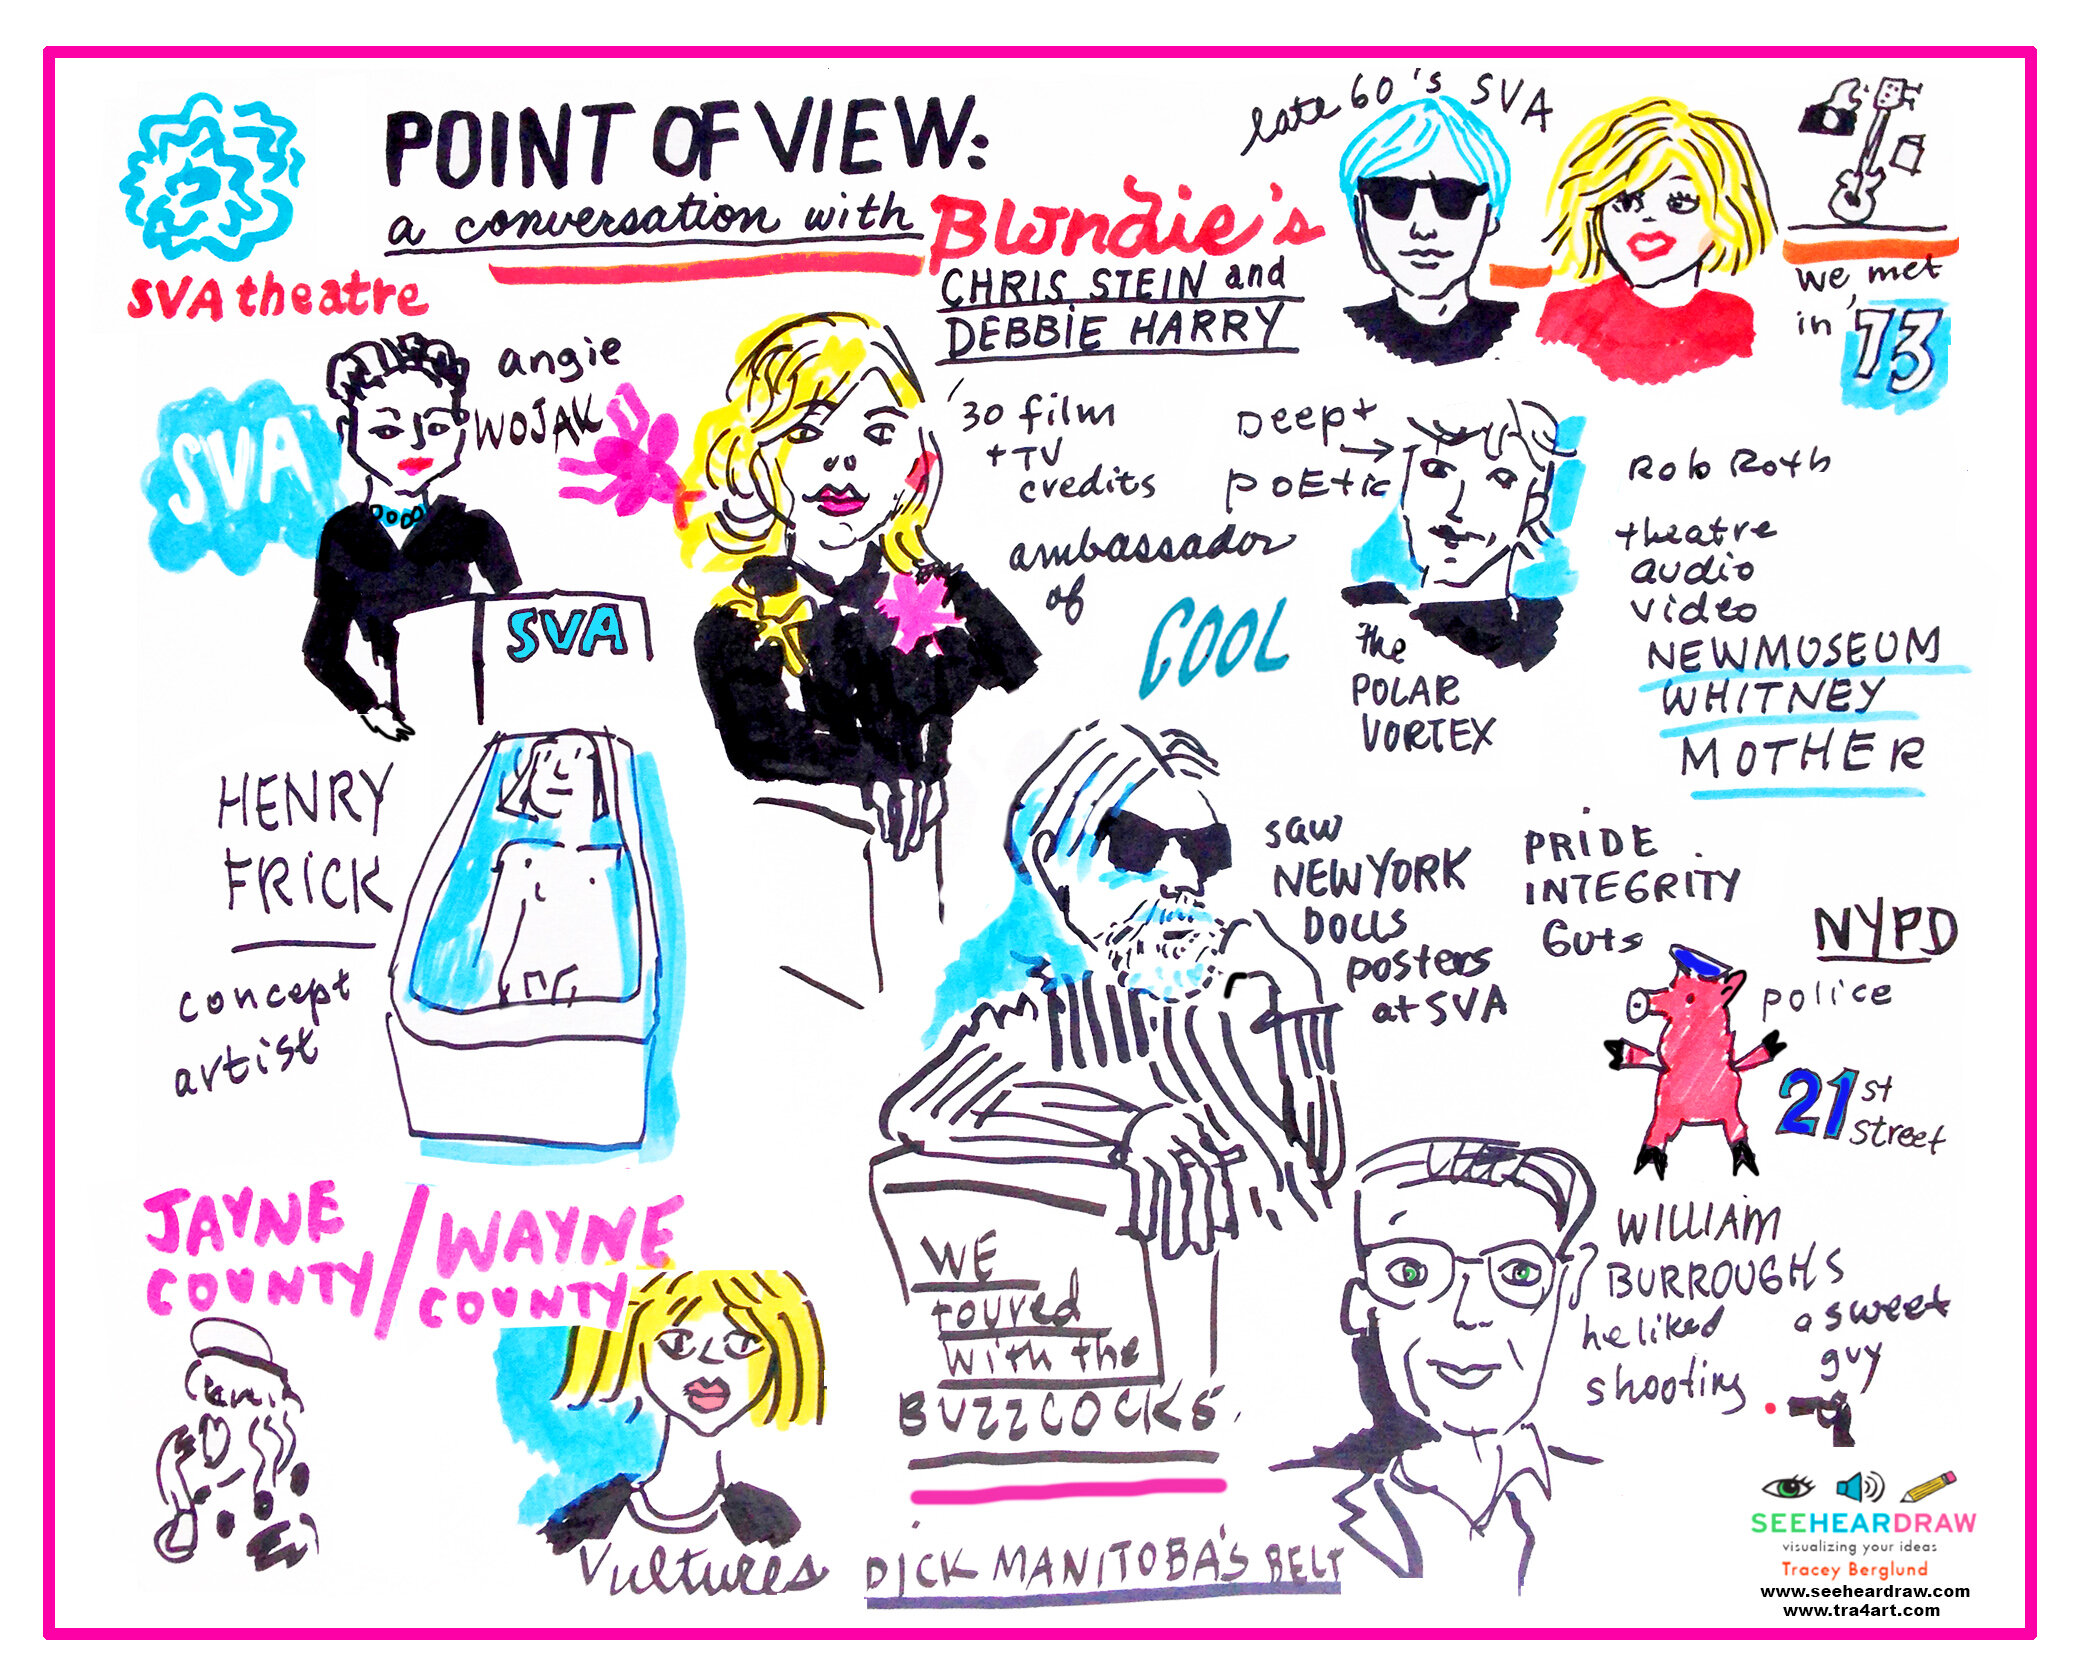 POINT OF VIEW:
a conversation with Blondie's
CHRIS STEIN and
DEBBIE HARRY
SVA theatre
late 60's SVA
we met
in '73
SVA
angie
WOJAK
SVA
'30 film
+ TV
credits
ambassador
of
COOL
Deep +
POEtic
Rob Roth
theatre
audio
video
NEWMUSEUM
WHITNEY
MOTHER
the
POLAR
VORTEX
HENRY
FRICK
concept
artist
saw
NEW YORK
DOLLS
posters
at SVA
PRIDE
INTEGRITY
Guts
NYPD
police
21st
street
JAYNE
COUNTY/
WAYNE
COUNTY
Vultures
WE
toured
with the
BUZZCOCKS.
DICK MANITOBA'S BELT
WILLIAM
BURROUGHS
he liked
shooting
a sweet
guy
SEEHEARDRAW
visualizing your ideas
Tracey Berglund
www.seeheardraw.com
www.tra4art.com